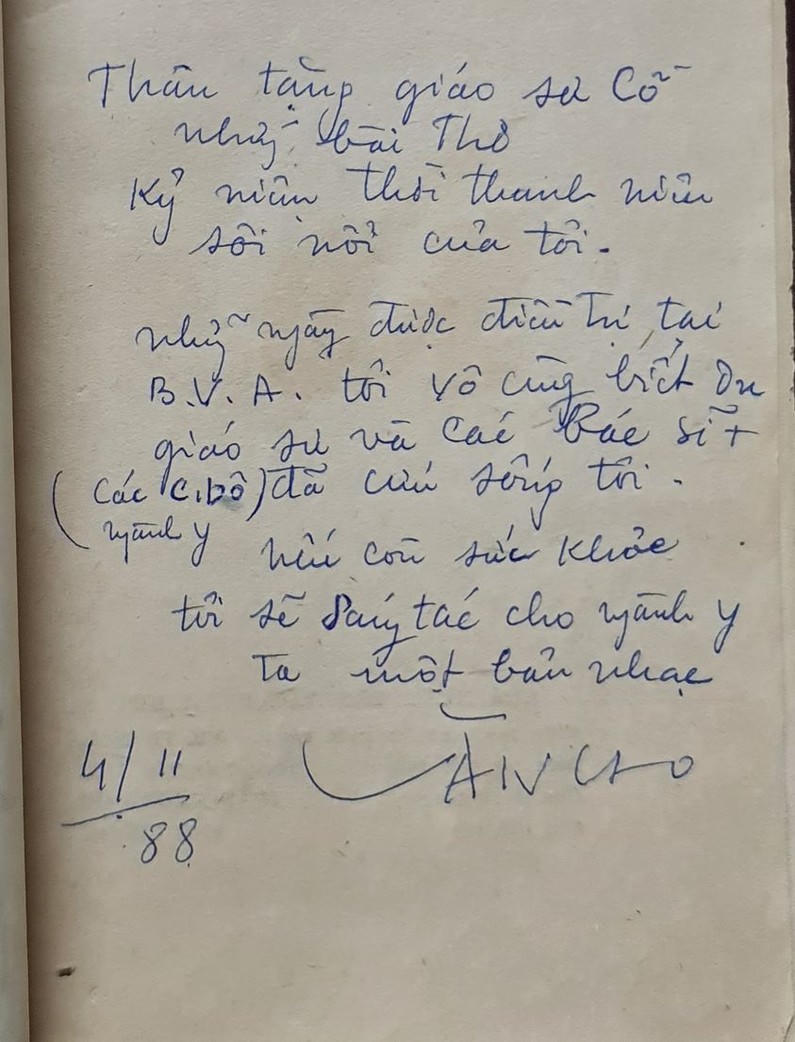 Thân tặng giáo sư Cỗ
những bài Thơ
Kỷ niệm thời thanh niên
sôi nổi của tôi.
những ngày được điều trị tại
B.V.A. tôi vô cùng biết ơn
giáo sư và các Bác sĩ +
(các c.bộ) đã cứu sống tôi.
ngành y
nếu còn sức khỏe
tôi sẽ sáng tác cho ngành y
ta một bản nhạc
4/11
88
VĂN CAO